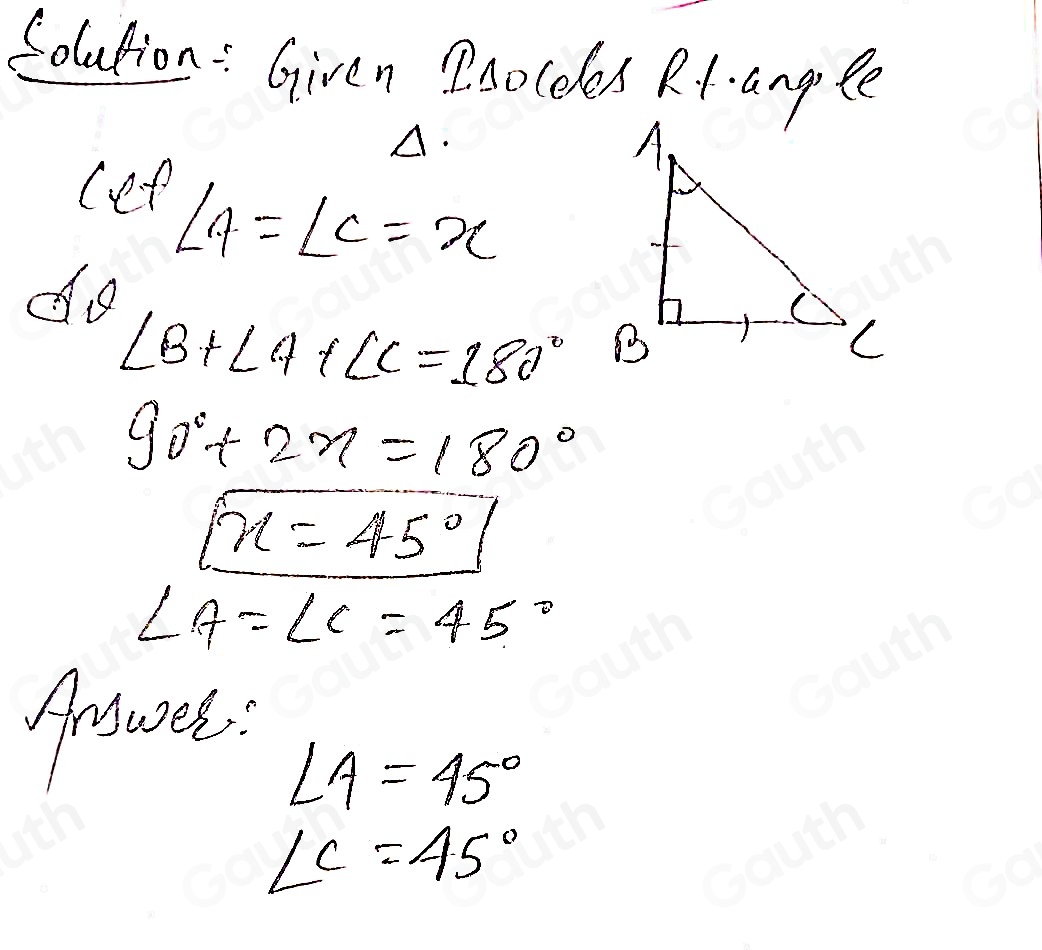 Solution:- Given Isoceles Rt. angle
Δ.
Let ∠A = ∠C = x
So
∠B + ∠A + ∠C = 180°
90° + 2x = 180°
x = 45°
∠A = ∠C = 45°
Answer:
∠A = 45°
∠C = 45°
A
B
C